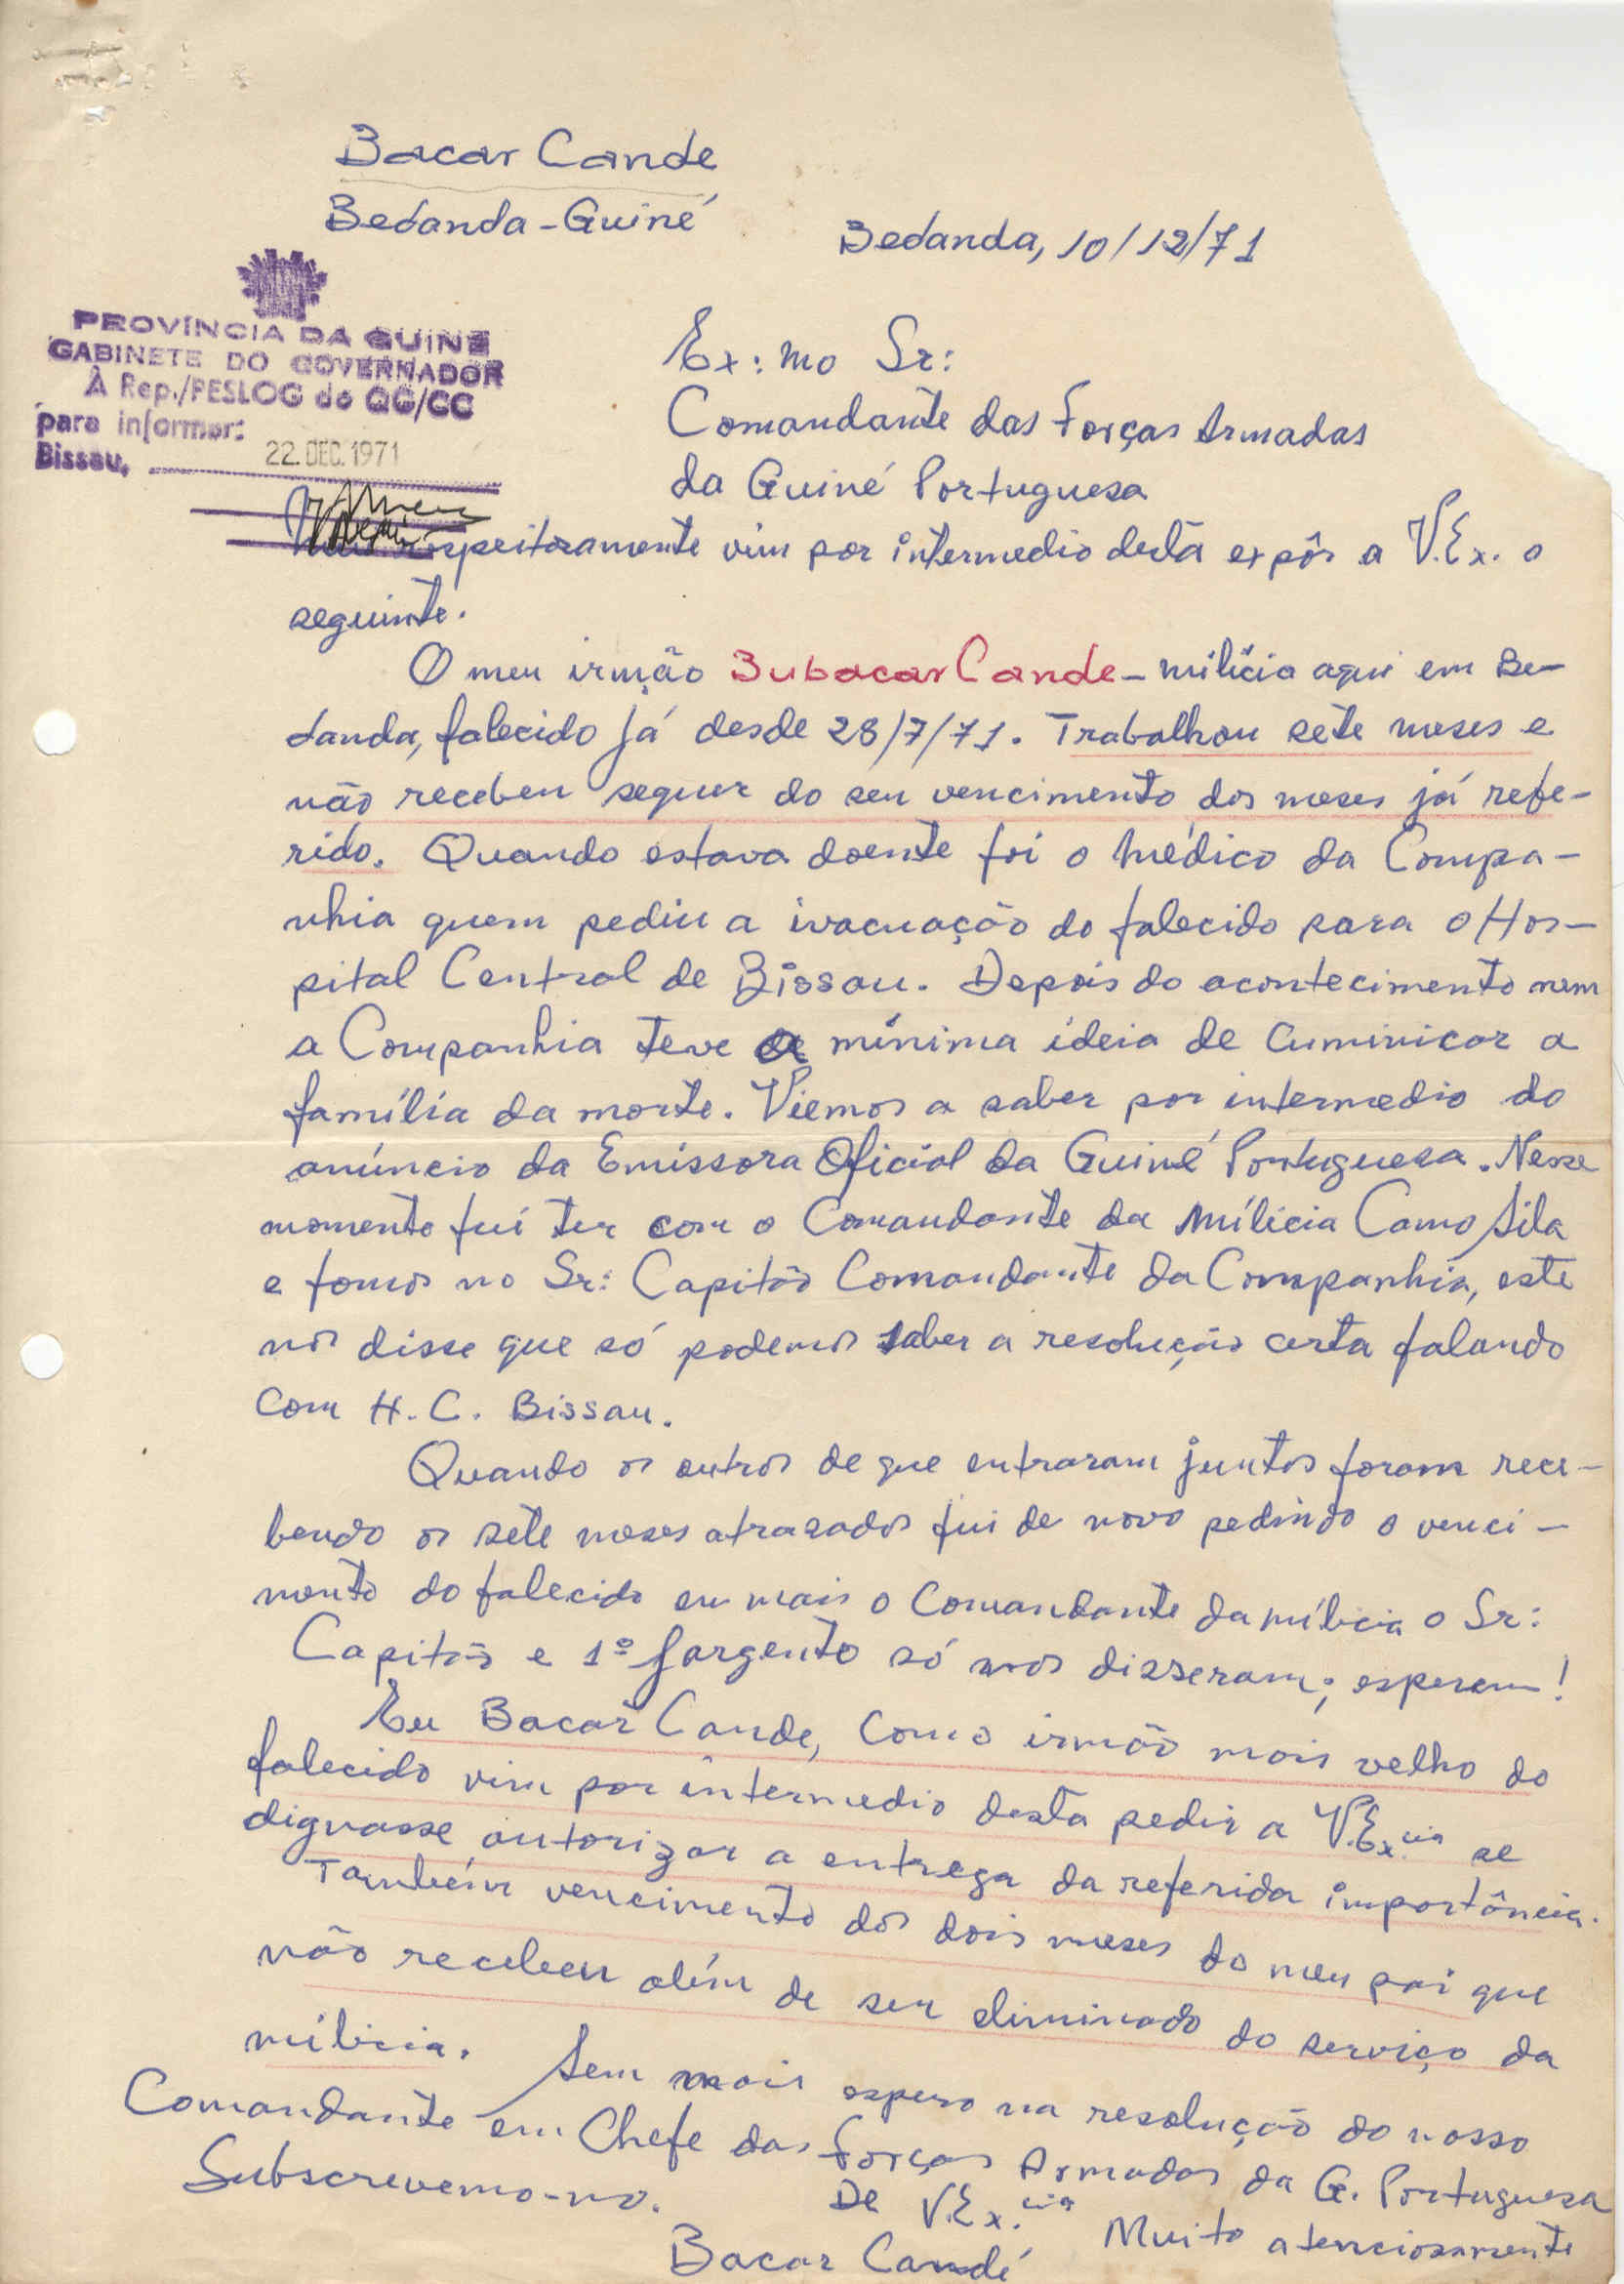 Bacar Cande
Bedanda - Guiné
Bedanda, 10/12/71
PROVÍNCIA DA GUINÉ
GABINETE DO GOVERNADOR
À Rep./PESLOG do QG/CC
para informar:
Bissau, 22. DEC. 1971
Ex: mo Sr:
Comandante das Forças Armadas
da Guiné Portuguesa
respeitosamente vim por intermedio desta expôr a V.Ex. o
seguinte.
O meu irmão Bubacar Cande - milícia aqui em Be-
danda, falecido já desde 28/7/71. Trabalhou sete meses e
não recebeu sequer do seu vencimento dos meses já refe-
rido. Quando estava doente foi o médico da Compa-
nhia quem pediu a ivacuação do falecido para o Hos-
pital Central de Bissau. Depois do acontecimento nem
a Companhia teve a mínima ideia de cuminicar a
família da morte. Viemos a saber por intermedio do
anúncio da Emissora Oficial da Guiné Portuguesa. Nesse
momento fui ter com o Comandante da Milícia Camo Sila
e fomos no Sr: Capitão Comandante da Companhia, este
nos disse que só podemos saber a resolução certa falando
com H. C. Bissau.
Quando os outros de que entraram juntos foram rece-
bendo os sete meses atrasados fui de novo pedindo o venci-
mento do falecido eu mais o Comandante da milícia o Sr:
Capitão e 1º Sargento só nos disseram; esperem!
Eu Bacar Cande, como irmão mais velho do
falecido vim por intermedio desta pedir a V.Ex.cia se
dignasse autorizar a entrega da referida importância.
Também vencimento dos dois meses do meu pai que
não recebeu além de ser eliminado do serviço da
milícia. Sem mais espero na resolução do nosso
Comandante em Chefe das Forças Armadas da G. Portuguesa
Subscrevemo-no. De V.Ex.cia Muito atenciosamente
Bacar Candé